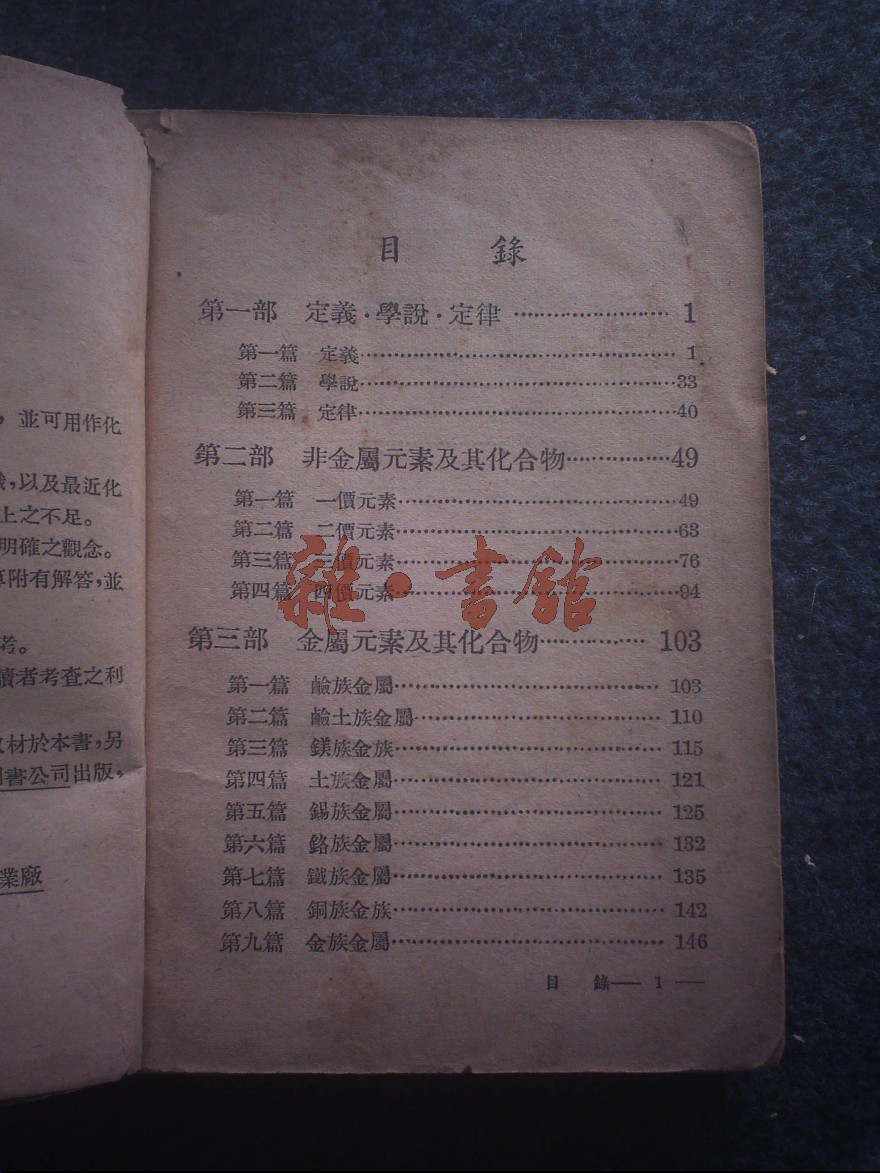 目 錄
第一部 定義·學說·定律 ……………… 1
第一篇 定義……………… 1
第二篇 學說……………… 33
第三篇 定律……………… 40
第二部 非金屬元素及其化合物……………… 49
第一篇 一價元素……………… 49
第二篇 二價元素……………… 63
第三篇 三價元素……………… 76
第四篇 四價元素……………… 94
第三部 金屬元素及其化合物……………… 103
第一篇 鹼族金屬……………… 103
第二篇 鹼土族金屬……………… 110
第三篇 鎂族金族……………… 115
第四篇 土族金屬……………… 121
第五篇 錫族金屬……………… 125
第六篇 鉻族金屬……………… 132
第七篇 鐵族金屬……………… 135
第八篇 銅族金族……………… 142
第九篇 金族金屬……………… 146
目 錄— 1 —
雜·書館
,並可用作化
,以及最近化
上之不足。
明確之觀念。
附有解答,並
考。
讀者考查之利
材於本書,另
書公司出版,
業廠